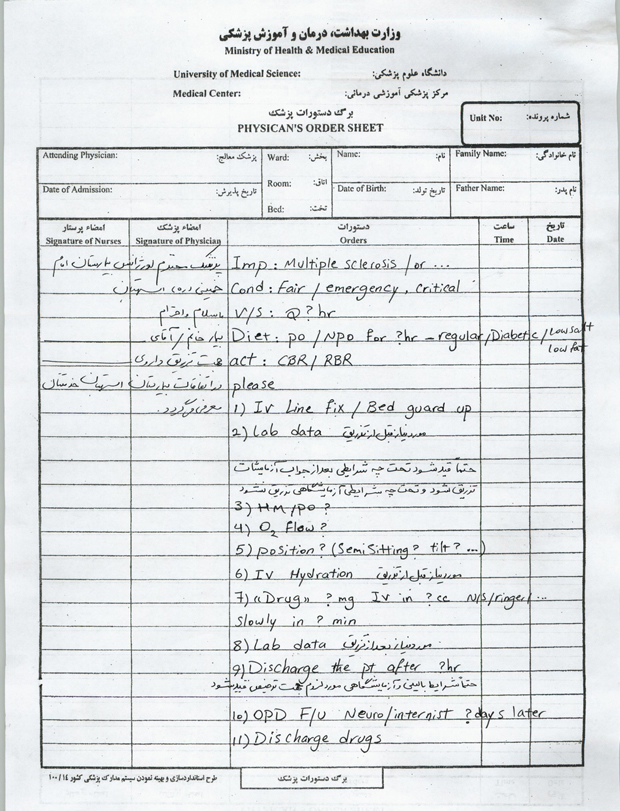 وزارت بهداشت، درمان و آموزش پزشکی
Ministry of Health & Medical Education
University of Medical Science: دانشگاه علوم پزشکی:
Medical Center: مرکز پزشکی آموزشی درمانی:
برگ دستورات پزشک
PHYSICAN'S ORDER SHEET
Unit No: شماره پرونده:
Attending Physician: پزشک معالج: Ward: بخش: Name: نام: Family Name: نام خانوادگی:
Room: اتاق:
Date of Admission: تاریخ پذیرش: Date of Birth: تاریخ تولد: Father Name: نام پدر:
Bed: تخت:
امضاء پرستار امضاء پزشک دستورات ساعت تاریخ
Signature of Nurses Signature of Physician Orders Time Date
پزشک محترم اورژانس بیمارستان امام
خمینی (ره) استهبان
با سلام و احترام
بیمار خانم / آقای
جهت تزریق داروی
در اتفاقات بیمارستان استهبان خدمتتان
معرفی می‌گردد.
Imp: Multiple sclerosis / or ...
Cond: Fair / emergency, critical
V/S: Q ? hr
Diet: po / NPO for ?hr – regular/Diabetic/Low salt
low fat
act: CBR / RBR
please
1) IV Line fix / Bed guard up
2) Lab data موردنیاز قبل از تزریق
حتماً قید شود تحت چه شرایطی بعد از جواب آزمایشات
تزریق شود و تحت چه شرایطی آزمایشگاهی تزریق نشود
3) HM/po ?
4) O2 flow ?
5) position ? (Semi Sitting? tilt? ...)
6) IV Hydration موردنیاز قبل از تزریق
7) «Drug» ? mg IV in ? cc N/S/ringer/...
slowly in ? min
8) Lab data موردنیاز بعد از تزریق
9) Discharge the pt after ?hr
حتماً شرایط بالینی و آزمایشگاهی مورد لزوم جهت ترخیص قید شود
10) OPD F/U Neuro/internist ? days later
11) Discharge drugs
طرح استانداردسازی و بهینه نمودن سیستم مدارک پزشکی کشور ۱۴ / ۱۰۰
برگ دستورات پزشک